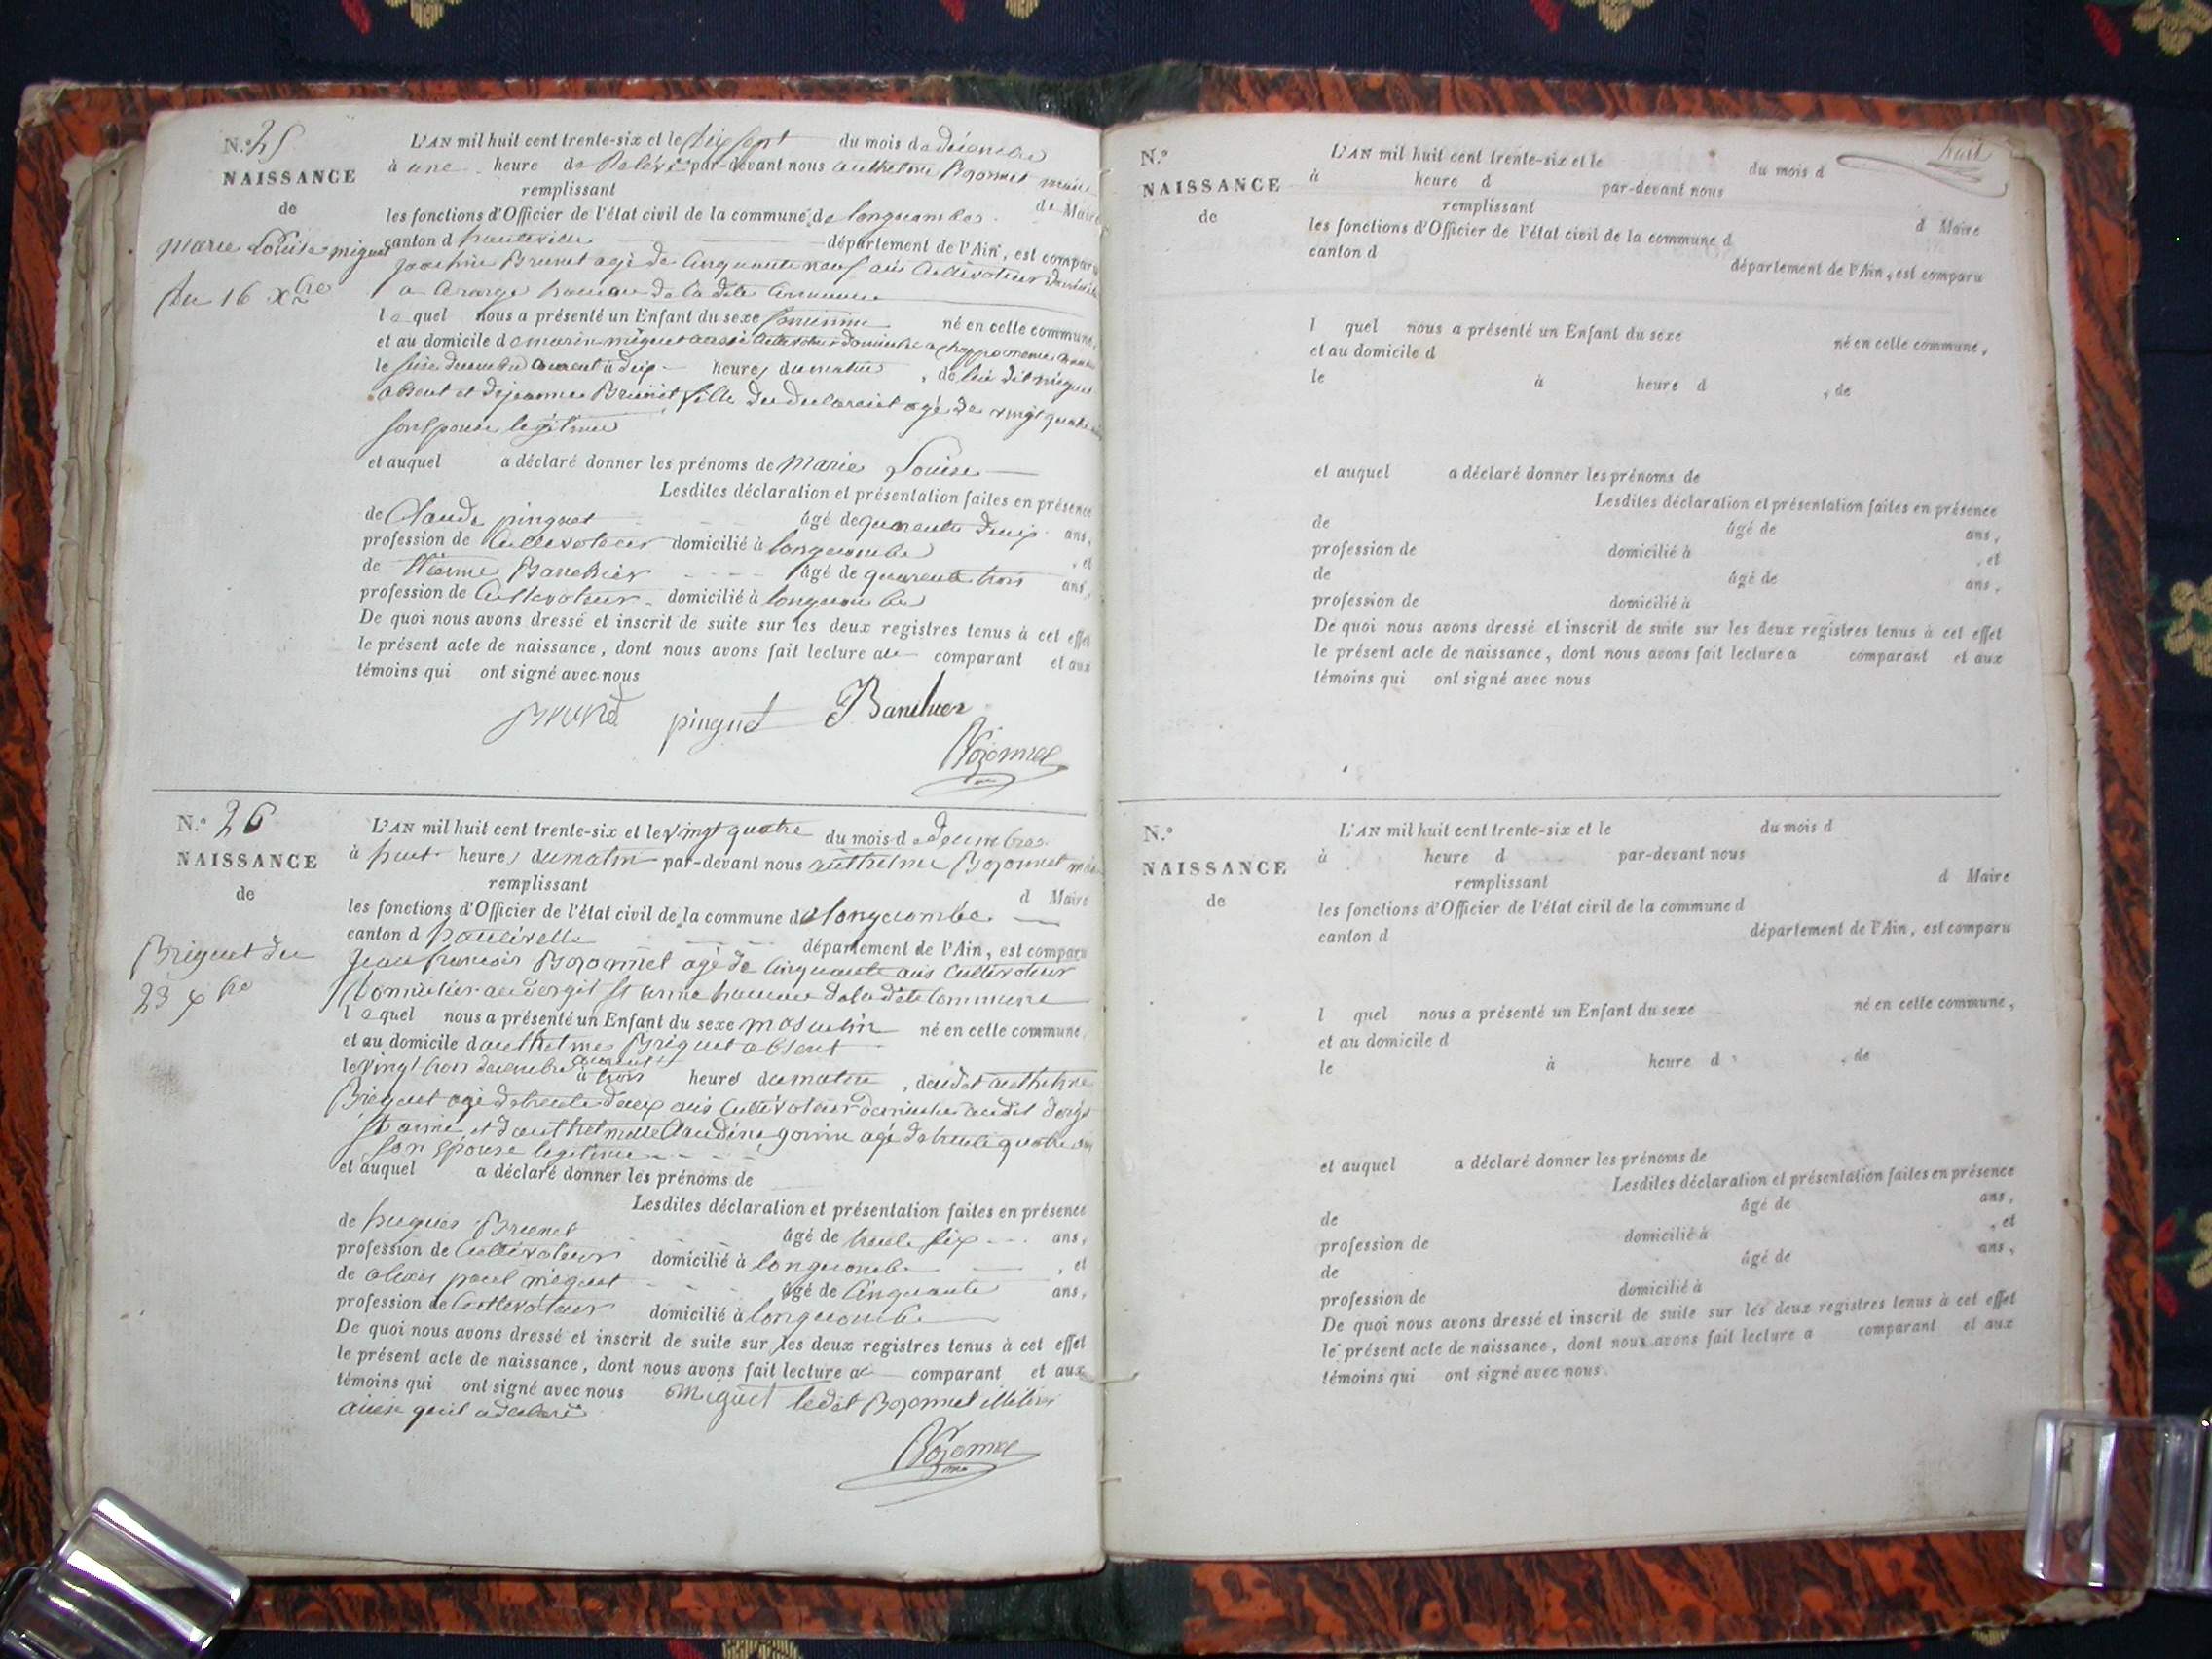 N.º 25
NAISSANCE
de
marie Louise miguet
du 16 xbre
L'AN mil huit cent trente-six et le dix sept du mois de décembre
à une heure de Relevé par-devant nous authelme Bozonnet maire
remplissant
de Maire
les fonctions d'Officier de l'état civil de la commune de longecombe
canton d hauteville département de l'Ain, est comparu
joachim Brunet agé de Cinquante neuf ans Cultivateur
a hameau de la dite Commune
le quel nous a présenté un Enfant du sexe feminin né en cette commune,
et au domicile de marin miguet
le seize decembre Courant à dix heures du matin, de lui dit miguet
absent et de jeanne Brunet fille du declarant agé de vingt quatre
son epouse legitime
et auquel a déclaré donner les prénoms de Marie Louise
Lesdites déclaration et présentation faites en présence
de Claude pinguet âgé de quarante deux ans,
profession de Cultivateur domicilié à longecombe, et
de Bancher âgé de quarante trois ans,
profession de Cultivateur domicilié à longecombe
De quoi nous avons dressé et inscrit de suite sur les deux registres tenus à cet effet
le présent acte de naissance, dont nous avons fait lecture au comparant et aux
témoins qui ont signé avec nous
Brunet pinguet Bancher
Bozonnet
N.º 26
NAISSANCE
de
Briguet du
23 xbre
L'AN mil huit cent trente-six et le vingt quatre du mois de decembre
à huit heures du matin par-devant nous authelme Bozonnet maire
remplissant
d Maire
les fonctions d'Officier de l'état civil de la commune de longecombe
canton d hauteville département de l'Ain, est comparu
jean françois Bozonnet agé de Cinquante ans Cultivateur
hameau de la dite Commune
le quel nous a présenté un Enfant du sexe masculin né en cette commune,
et au domicile d authelme Briguet absent
le vingt trois decembre courant à trois heures du matin, dudit authelme
Briguet agé de trente deux ans Cultivateur domicilié audit
et d'authelmette Claudine gorin agé de trente quatre ans
son epouse legitime
et auquel a déclaré donner les prénoms de
Lesdites déclaration et présentation faites en présence
de hugues Brunet âgé de trente six ans,
profession de Cultivateur domicilié à longecombe, et
de alexis paul miguet âgé de Cinquante ans,
profession de Cultivateur domicilié à longecombe
De quoi nous avons dressé et inscrit de suite sur les deux registres tenus à cet effet
le présent acte de naissance, dont nous avons fait lecture au comparant et aux
témoins qui ont signé avec nous Miguet ledit Bozonnet illitéré
ainsi qu'il a declaré
Bozonnet
huit
N.º
NAISSANCE
de
L'AN mil huit cent trente-six et le du mois d
à heure d par-devant nous
remplissant
d Maire
les fonctions d'Officier de l'état civil de la commune d
canton d département de l'Ain, est comparu
l quel nous a présenté un Enfant du sexe né en cette commune,
et au domicile d
le à heure d , de
et auquel a déclaré donner les prénoms de
Lesdites déclaration et présentation faites en présence
de âgé de ans,
profession de domicilié à , et
de âgé de ans,
profession de domicilié à
De quoi nous avons dressé et inscrit de suite sur les deux registres tenus à cet effet
le présent acte de naissance, dont nous avons fait lecture a comparant et aux
témoins qui ont signé avec nous
N.º
NAISSANCE
de
L'AN mil huit cent trente-six et le du mois d
à heure d par-devant nous
remplissant
d Maire
les fonctions d'Officier de l'état civil de la commune d
canton d département de l'Ain, est comparu
l quel nous a présenté un Enfant du sexe né en cette commune,
et au domicile d
le à heure d , de
et auquel a déclaré donner les prénoms de
Lesdites déclaration et présentation faites en présence
de âgé de ans,
profession de domicilié à , et
de âgé de ans,
profession de domicilié à
De quoi nous avons dressé et inscrit de suite sur les deux registres tenus à cet effet
le présent acte de naissance, dont nous avons fait lecture a comparant et aux
témoins qui ont signé avec nous